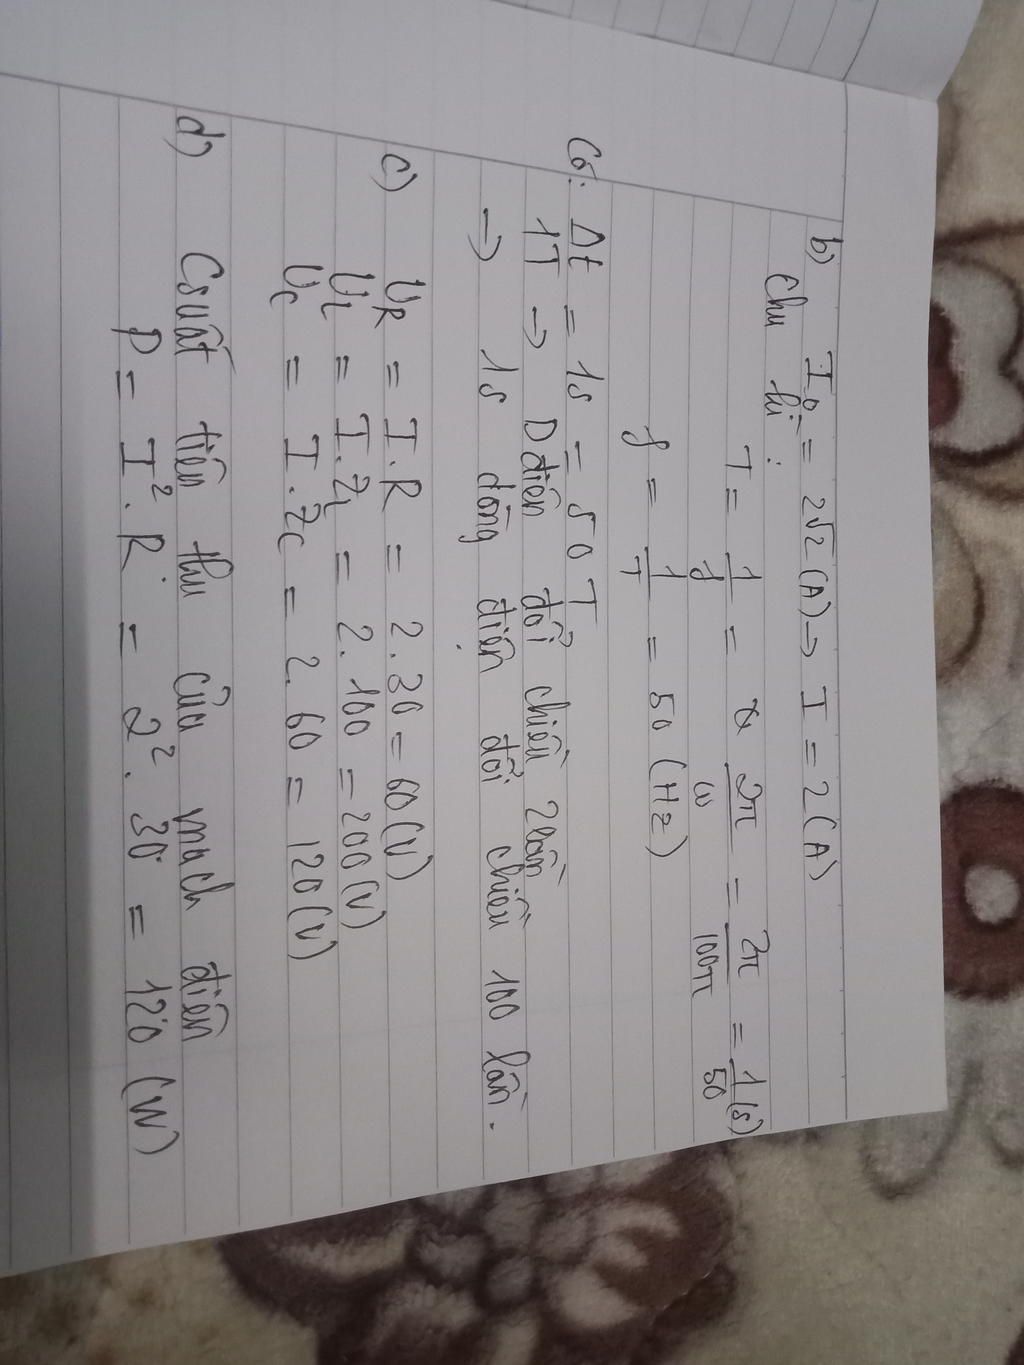 b) I₀ = 2√2 (A) → I = 2 (A)
Chu kì :
T = 1/f = 2π/ω = 2π/100π = 1/50 (s)
f = 1/T = 50 (Hz)
Có: Δt = 1s = 50T
1T → D điện đổi chiều 2 lần
→ 1s dòng điện đổi chiều 100 lần.
c) U_R = I.R = 2.30 = 60 (V)
U_L = I.Z_L = 2.100 = 200 (V)
U_C = I.Z_C = 2.60 = 120 (V)
d) Csuất tiêu thụ của mạch điện
P = I².R = 2².30 = 120 (W)